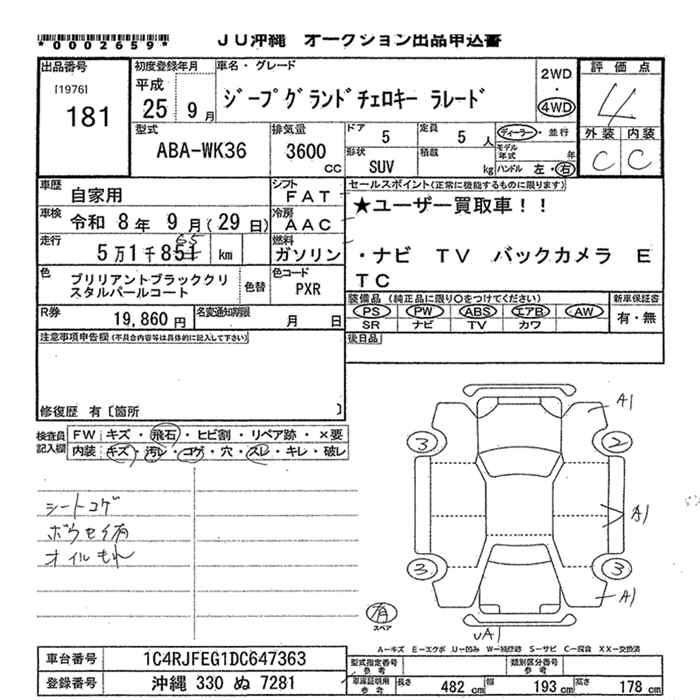 *0002659* JU沖縄 オークション出品申込書
出品番号 初度登録年月 車名・グレード 2WD・4WD 評価点
[1976] 181 平成 25 9月 ジープグランドチェロキー ラレード 4
型式 排気量 ドア 5 定員 5人 ディーラー・並行 外装 内装
ABA-WK36 3600cc 形状 SUV 積載 kg モデル年式 年 ハンドル 左・右 C C
車歴 自家用 シフト FAT セールスポイント(正常に機能するものに限ります)
車検 令和 8年 9月(29日) 冷房 AAC ★ユーザー買取車!!
走行 5万1千851 km 燃料 ガソリン ・ナビ TV バックカメラ E
色 ブリリアントブラッククリ 色替 色コード TC
スタルパールコート PXR 装備品 (純正品に限り○をつけてください) 新車保証書
R券 19,860円 名変通知期限 月 日 PS PW ABS エアB AW 有・無
SR ナビ TV カワ
注意事項申告欄(不具合内容等は具体的に記入して下さい) 後日品
修復歴 有〔箇所 〕
検査員記入欄 FW キズ・飛石・ヒビ割・リペア跡・×要
内装 キズ・汚レ・コゲ・穴・スレ・キレ・破レ
A1
3 2
シートコゲ
ボウセイ有
オイルもれ
A1
3 3
A1
有
スペア
UA1
A―キズ E―エクボ U―凹み W―補修跡 S―サビ C―腐食 XX―交換済
車台番号 1C4RJFEG1DC647363 型式指定番号 参考 類別区分番号 参考
登録番号 沖縄 330 ぬ 7281 車庫証明用 参考 長さ 482cm 幅 193cm 高さ 178cm